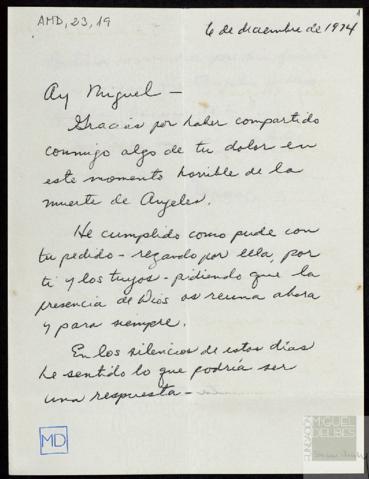 AMD, 23, 19
6 de diciembre de 1974
Ay Miguel —
Gracias por haber compartido
conmigo algo de tu dolor en
este momento horrible de la
muerte de Angeles.
He cumplido como pude con
tu pedido - rezando por ella, por
ti y los tuyos - pidiendo que la
presencia de Dios os reuna ahora
y para siempre.
En los silencios de estos días
he sentido lo que podría ser
una respuesta —
MD
FUNDACIÓN
MIGUEL
DELIBES